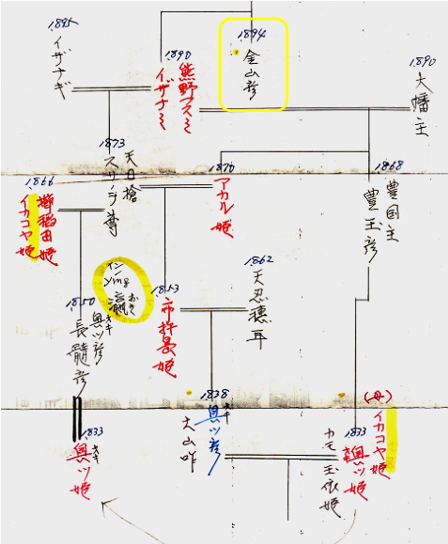 1895
イザナギ
1890
熊野フスミ
イザナミ
1894
金山彦
1890
大幡主
1873
スサノヲ尊
天日槍
1870
アカル姫
1868
豊国主
豊玉彦
1866
櫛稲田姫
イカコヤ姫
イン
Ying
瀛
おき
1853
市杵島姫
1862
天忍穂耳
1850
奥ツ彦
オキ
長髄彦
1838
奥ツ彦
オキ
大山咋
1833
奥ツ姫
オキ
1833
奥ツ姫
カモ玉依姫
(母)
イカコヤ姫